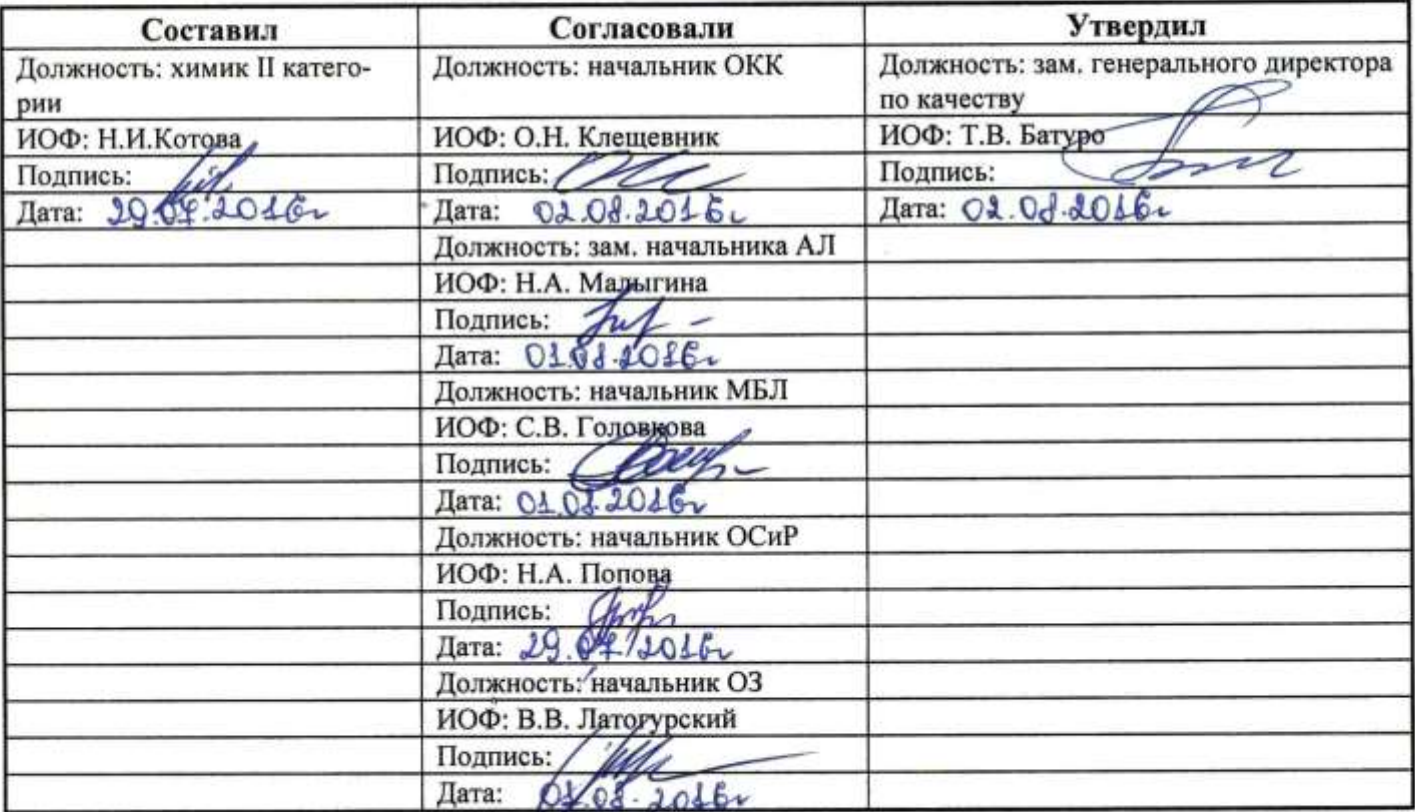 Составил Согласовали Утвердил
Должность: химик II катего- Должность: начальник ОКК Должность: зам. генерального директора
рии по качеству
ИОФ: Н.И.Котова ИОФ: О.Н. Клещевник ИОФ: Т.В. Батуро
Подпись: Подпись: Подпись:
Дата: 29.07.2016г Дата: 02.08.2016г Дата: 02.08.2016г
Должность: зам. начальника АЛ
ИОФ: Н.А. Малыгина
Подпись:
Дата: 01.08.2016г
Должность: начальник МБЛ
ИОФ: С.В. Головкова
Подпись:
Дата: 01.08.2016г
Должность: начальник ОСиР
ИОФ: Н.А. Попова
Подпись:
Дата: 29.07.2016г
Должность: начальник ОЗ
ИОФ: В.В. Латогурский
Подпись:
Дата: 01.08.2016г